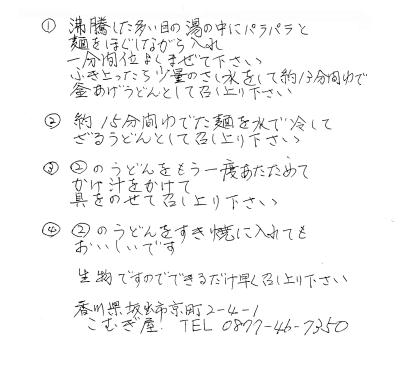 ① 沸騰した多い目の湯の中にパラパラと
麺をほぐしながら入れ
一分間位よくまぜて下さい
ふき上ったら少量のさし水をして約13分間ゆで
釜あげうどんとして召し上り下さい
② 約15分間ゆでた麺を水で冷して
ざるうどんとして召し上り下さい
③ ②のうどんをもう一度あたためて
かけ汁をかけて
具をのせて召し上り下さい
④ ②のうどんをすき焼に入れても
おいしいです
生物ですのでできるだけ早く召し上り下さい
香川県坂出市京町2-4-1
こむぎ屋. TEL 0877-46-7350